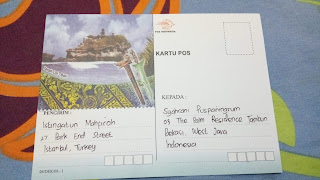 POS INDONESIA
KARTU POS
PENGIRIM :
Istingatun Mahpiroh
27 Park End Street
Istanbul, Turkey
KEPADA :
Syahrani Puspaningrum
08 The Palm Residence Tambun
Bekasi, West Java
Indonesia